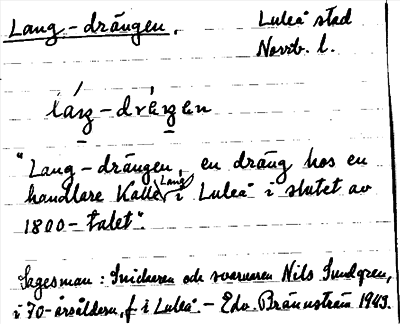 Lang-drängen.
Luleå stad
Norrb. l.
láŋ-dréŋen
"Lang-drängen, en dräng hos en
handlare Kalle Lang i Luleå i slutet av
1800-talet".
Sagesman: Snickaren och svarvaren Nils Sundgren,
i 70-årsåldern, f. i Luleå. - Edv. Brännström 1943.